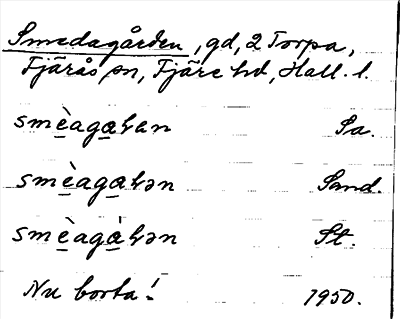 Smedagården, gd, 2 Torpa,
Fjärås sn, Fjäre hd, Hall. l.
smèagaҺan Sa.
smèagaҺən Sand.
smèagàҺən St.
Nu borta! 1950.